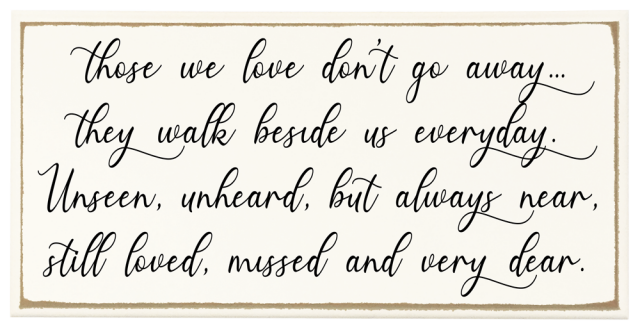 those we love don't go away...
they walk beside us everyday.
Unseen, unheard, but always near,
still loved, missed and very dear.